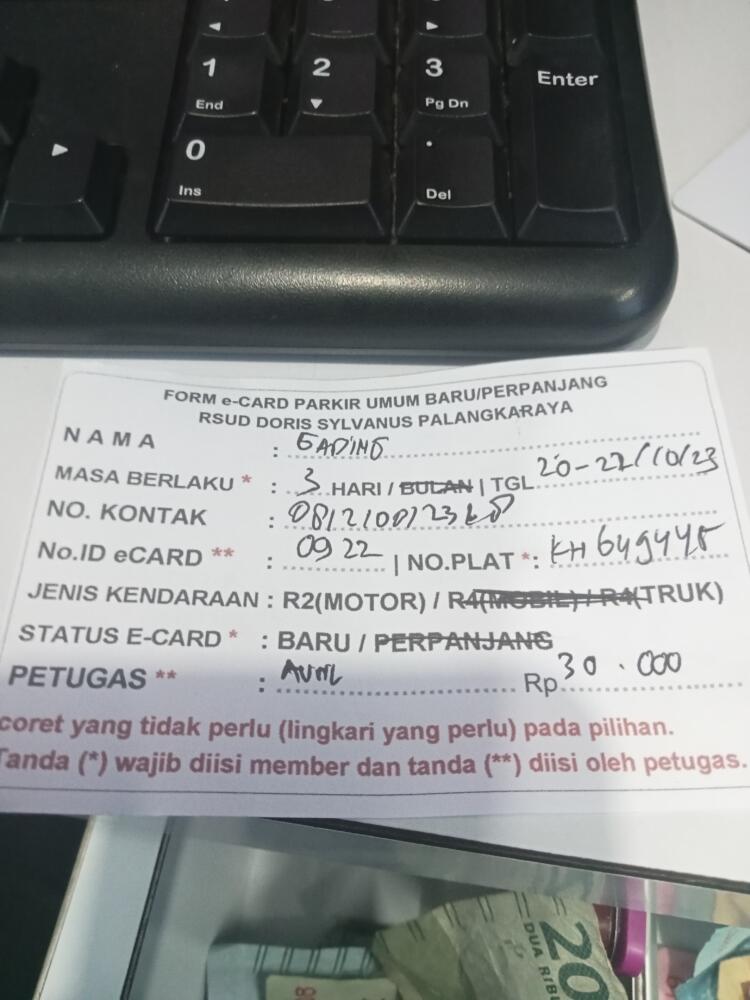 1 2 3 Enter
End Pg Dn
0 .
Ins Del
FORM e-CARD PARKIR UMUM BARU/PERPANJANG
RSUD DORIS SYLVANUS PALANGKARAYA
NAMA : GADING
MASA BERLAKU * : 3 HARI / BULAN | TGL 20-22/10/23
NO. KONTAK :
No.ID eCARD ** : 0922 | NO.PLAT *: KH
JENIS KENDARAAN : R2(MOTOR) / R4(MOBIL) / R4(TRUK)
STATUS E-CARD * : BARU / PERPANJANG
PETUGAS ** : Rp 30.000
coret yang tidak perlu (lingkari yang perlu) pada pilihan.
Tanda (*) wajib diisi member dan tanda (**) diisi oleh petugas.
20
DUA RIBU